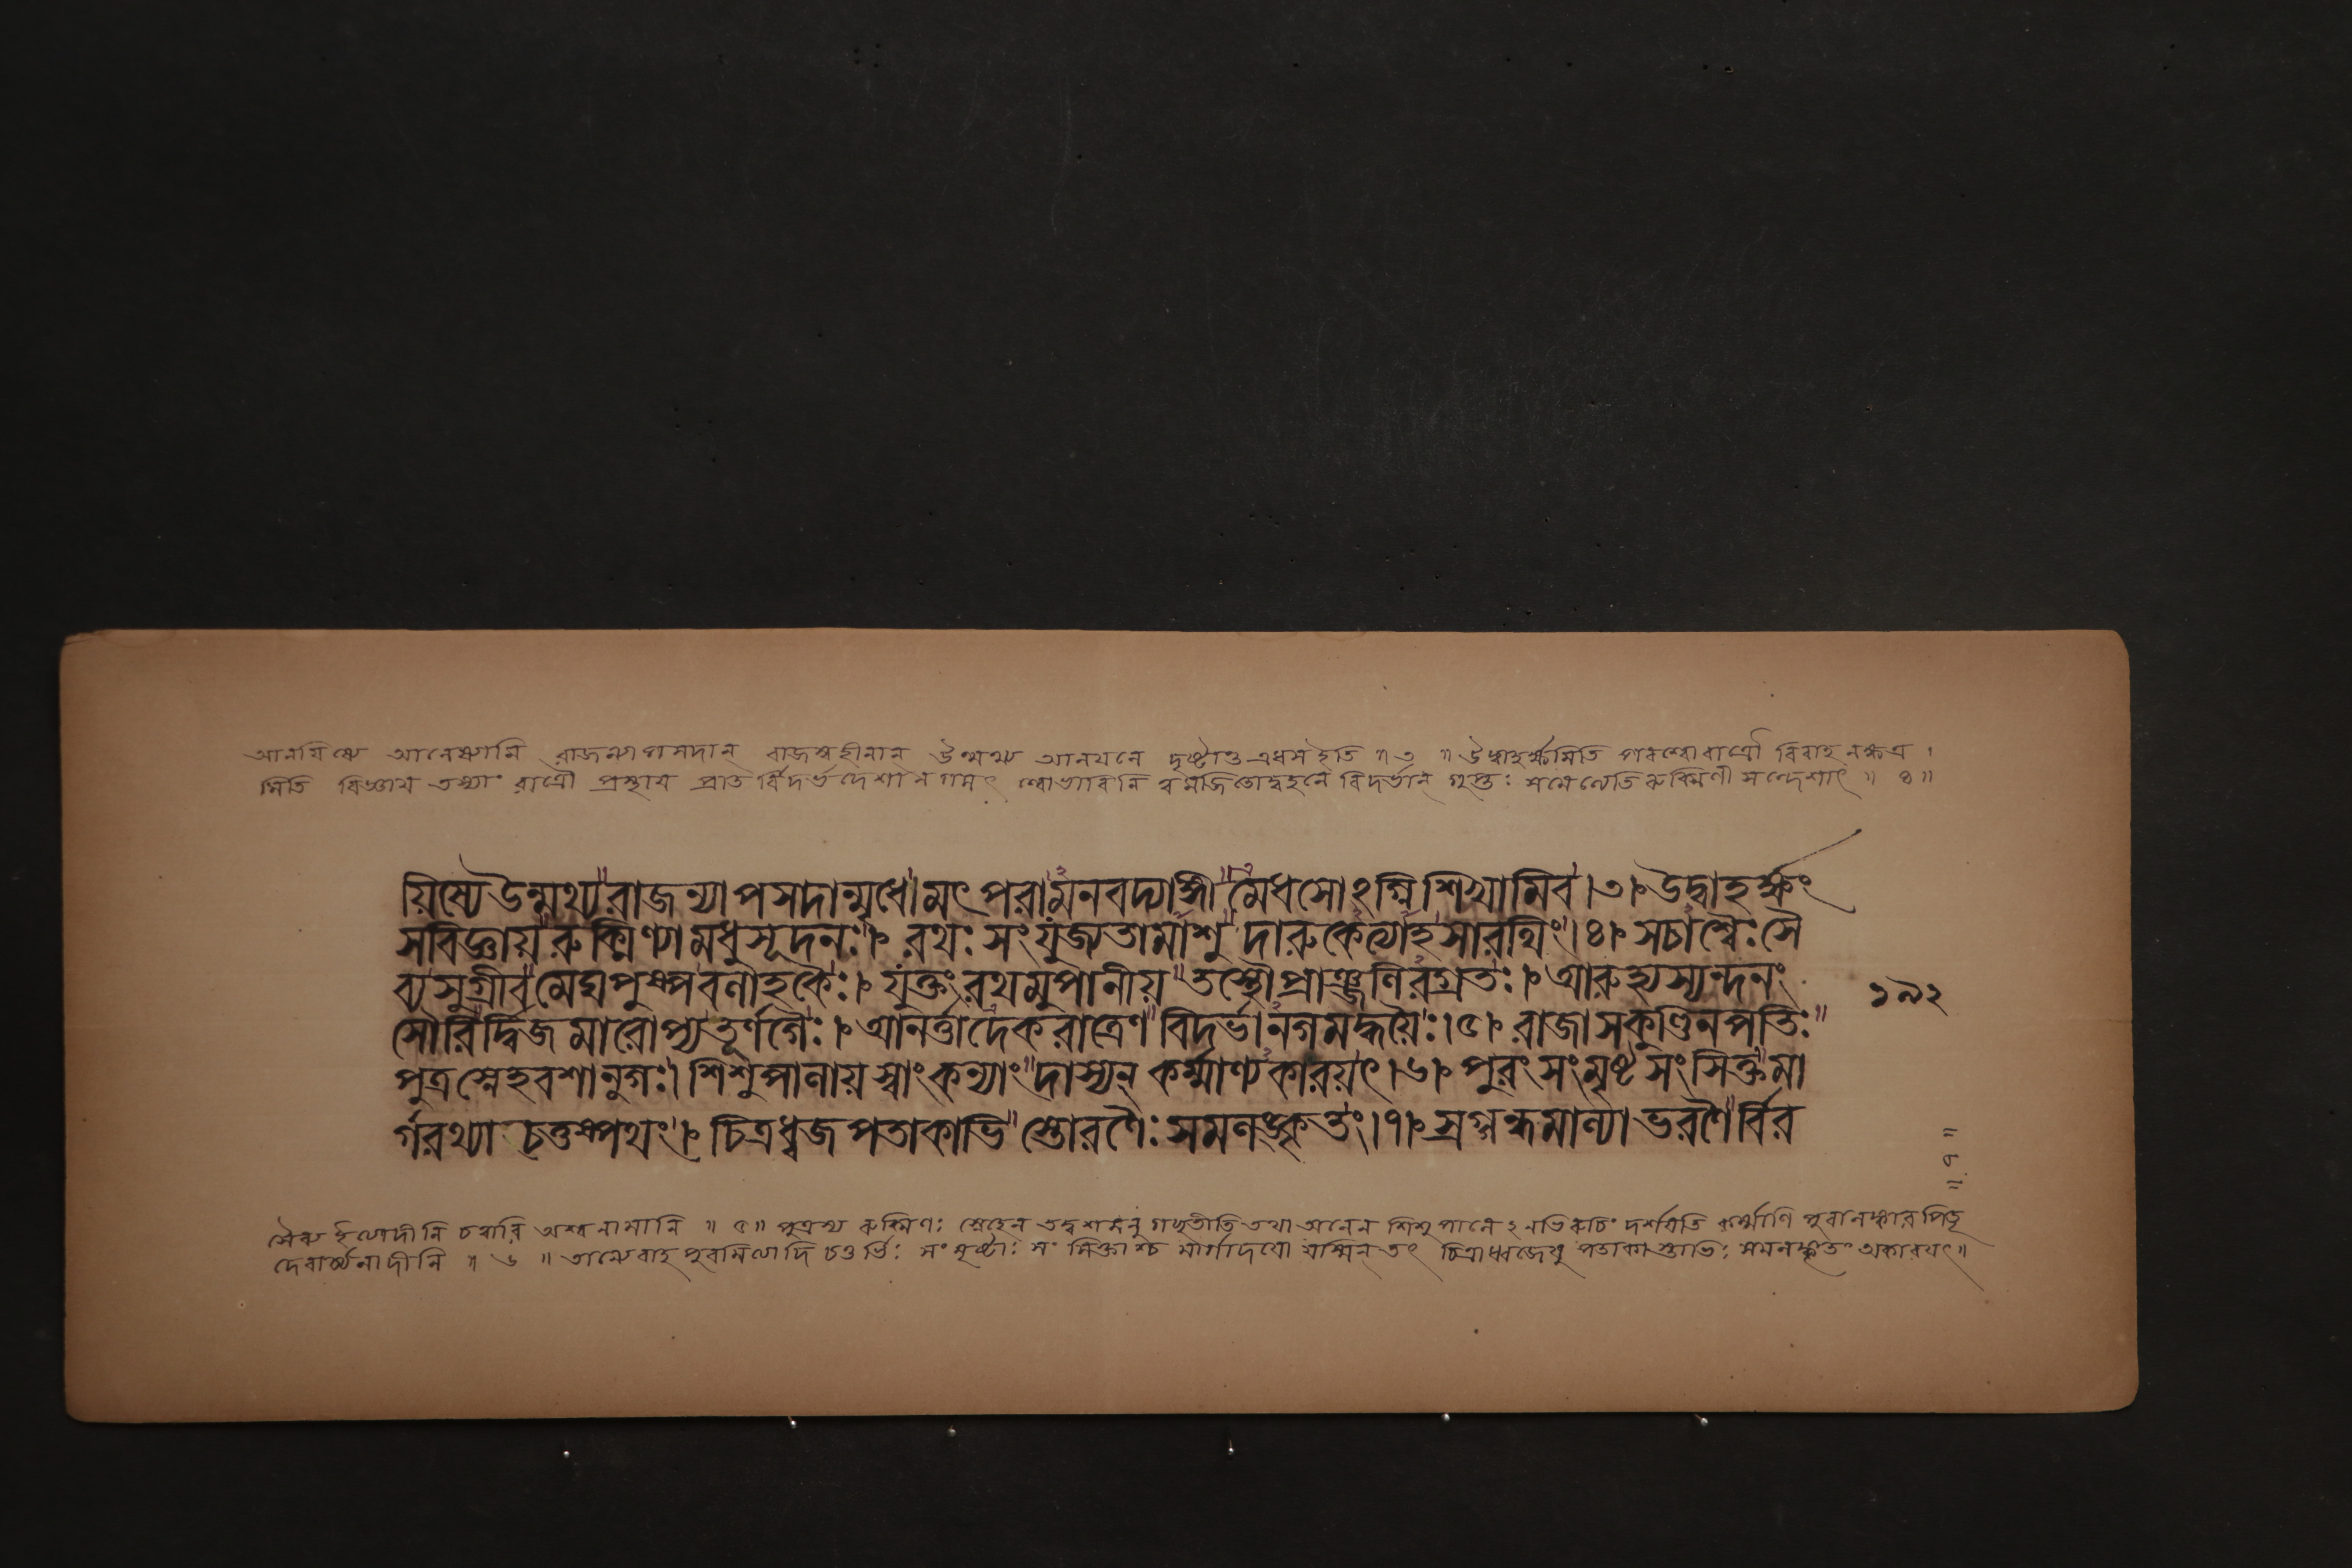 আনযিষ্যে আনেষ্যামি রাজন্যাপসদান্ রাজন্যহীনান্ উন্মথ্য আনযনে দৃষ্টান্ত এধস ইতি ॥ ৩ ॥ উদ্বাহর্ক্ষমিতি পরশ্বোরাত্রৌ বিবাহ নক্ষত্র ।
মিতি বিজ্ঞায তস্যাং রাত্রৌ প্রস্থায প্রাত র্বিদর্ভদেশান গমৎ শ্বোভাবিনি ত্বমজিতোদ্বহনে বিদর্ভান্ গুপ্তঃ সমেত্যেতি রুক্মিণী সন্দেশাৎ ॥ ৪ ॥
য়িষ্যেউন্মথ্য রাজন্যাপসদান্মৃধে। মৎপরামনবদ্যাঙ্গী মেধসোঽগ্নিশিখামিব।৩। উদ্বাহর্ক্ষং
সবিজ্ঞায় রুক্মিণ্যা মধুসূদনঃ। রথঃ সংযুজ্যতামাশু দারুকেত্যাহ সারথিং।৪। সচাশ্বৈঃ সৈ
ব্য সুগ্রীব মেঘপুষ্পবলাহকৈঃ। যুক্তং রথমুপানীয় তস্থৌপ্রাঞ্জলিরগ্রতঃ। আরুহ্যস্যন্দনং
সৌরি র্দ্বিজমারোপ্য তূর্ণগৈঃ। আনর্ত্তাদেকরাত্রেণ বিদর্ভানগমদ্ধয়ৈঃ।৫। রাজা স কুণ্ডিনপতিঃ
পুত্রস্নেহবশানুগঃ। শিশুপালায় স্বাং কন্যাং দাস্যন্ কর্ম্মাণ্যকারয়ৎ।৬। পুরং সংমৃষ্ট সংসিক্তমা
র্গরথ্যা চতুষ্পথং। চিত্রধ্বজপতাকাভি স্তোরণৈঃ সমলঙ্কৃতং।৭। স্রগ্গন্ধমাল্যাভরণৈ র্বির
১৯২
॥ ৭ ॥
সৈব্য ইত্যাদীনি চত্বারি অশ্বনামানি ॥ ৫ ॥ পুত্রস্য রুক্মিণঃ স্নেহেন তদ্বশমনু গচ্ছতীতি তথা অনেন শিশুপালে ঽনভিরুচিং দর্শযতি কর্ম্মাণি পুরালঙ্কার পিতৃ
দেবার্চ্চনাদীনি ॥ ৬ ॥ তান্যেবাহ পুরমিত্যাদি চতুর্ভিঃ সংমৃষ্টাঃ সংসিক্তাশ্চ মার্গাদযো যস্মিন্ তৎ চিত্রাধ্বজেষু পতাকা স্তাভিঃ সমলঙ্কৃতং অকারযৎ॥